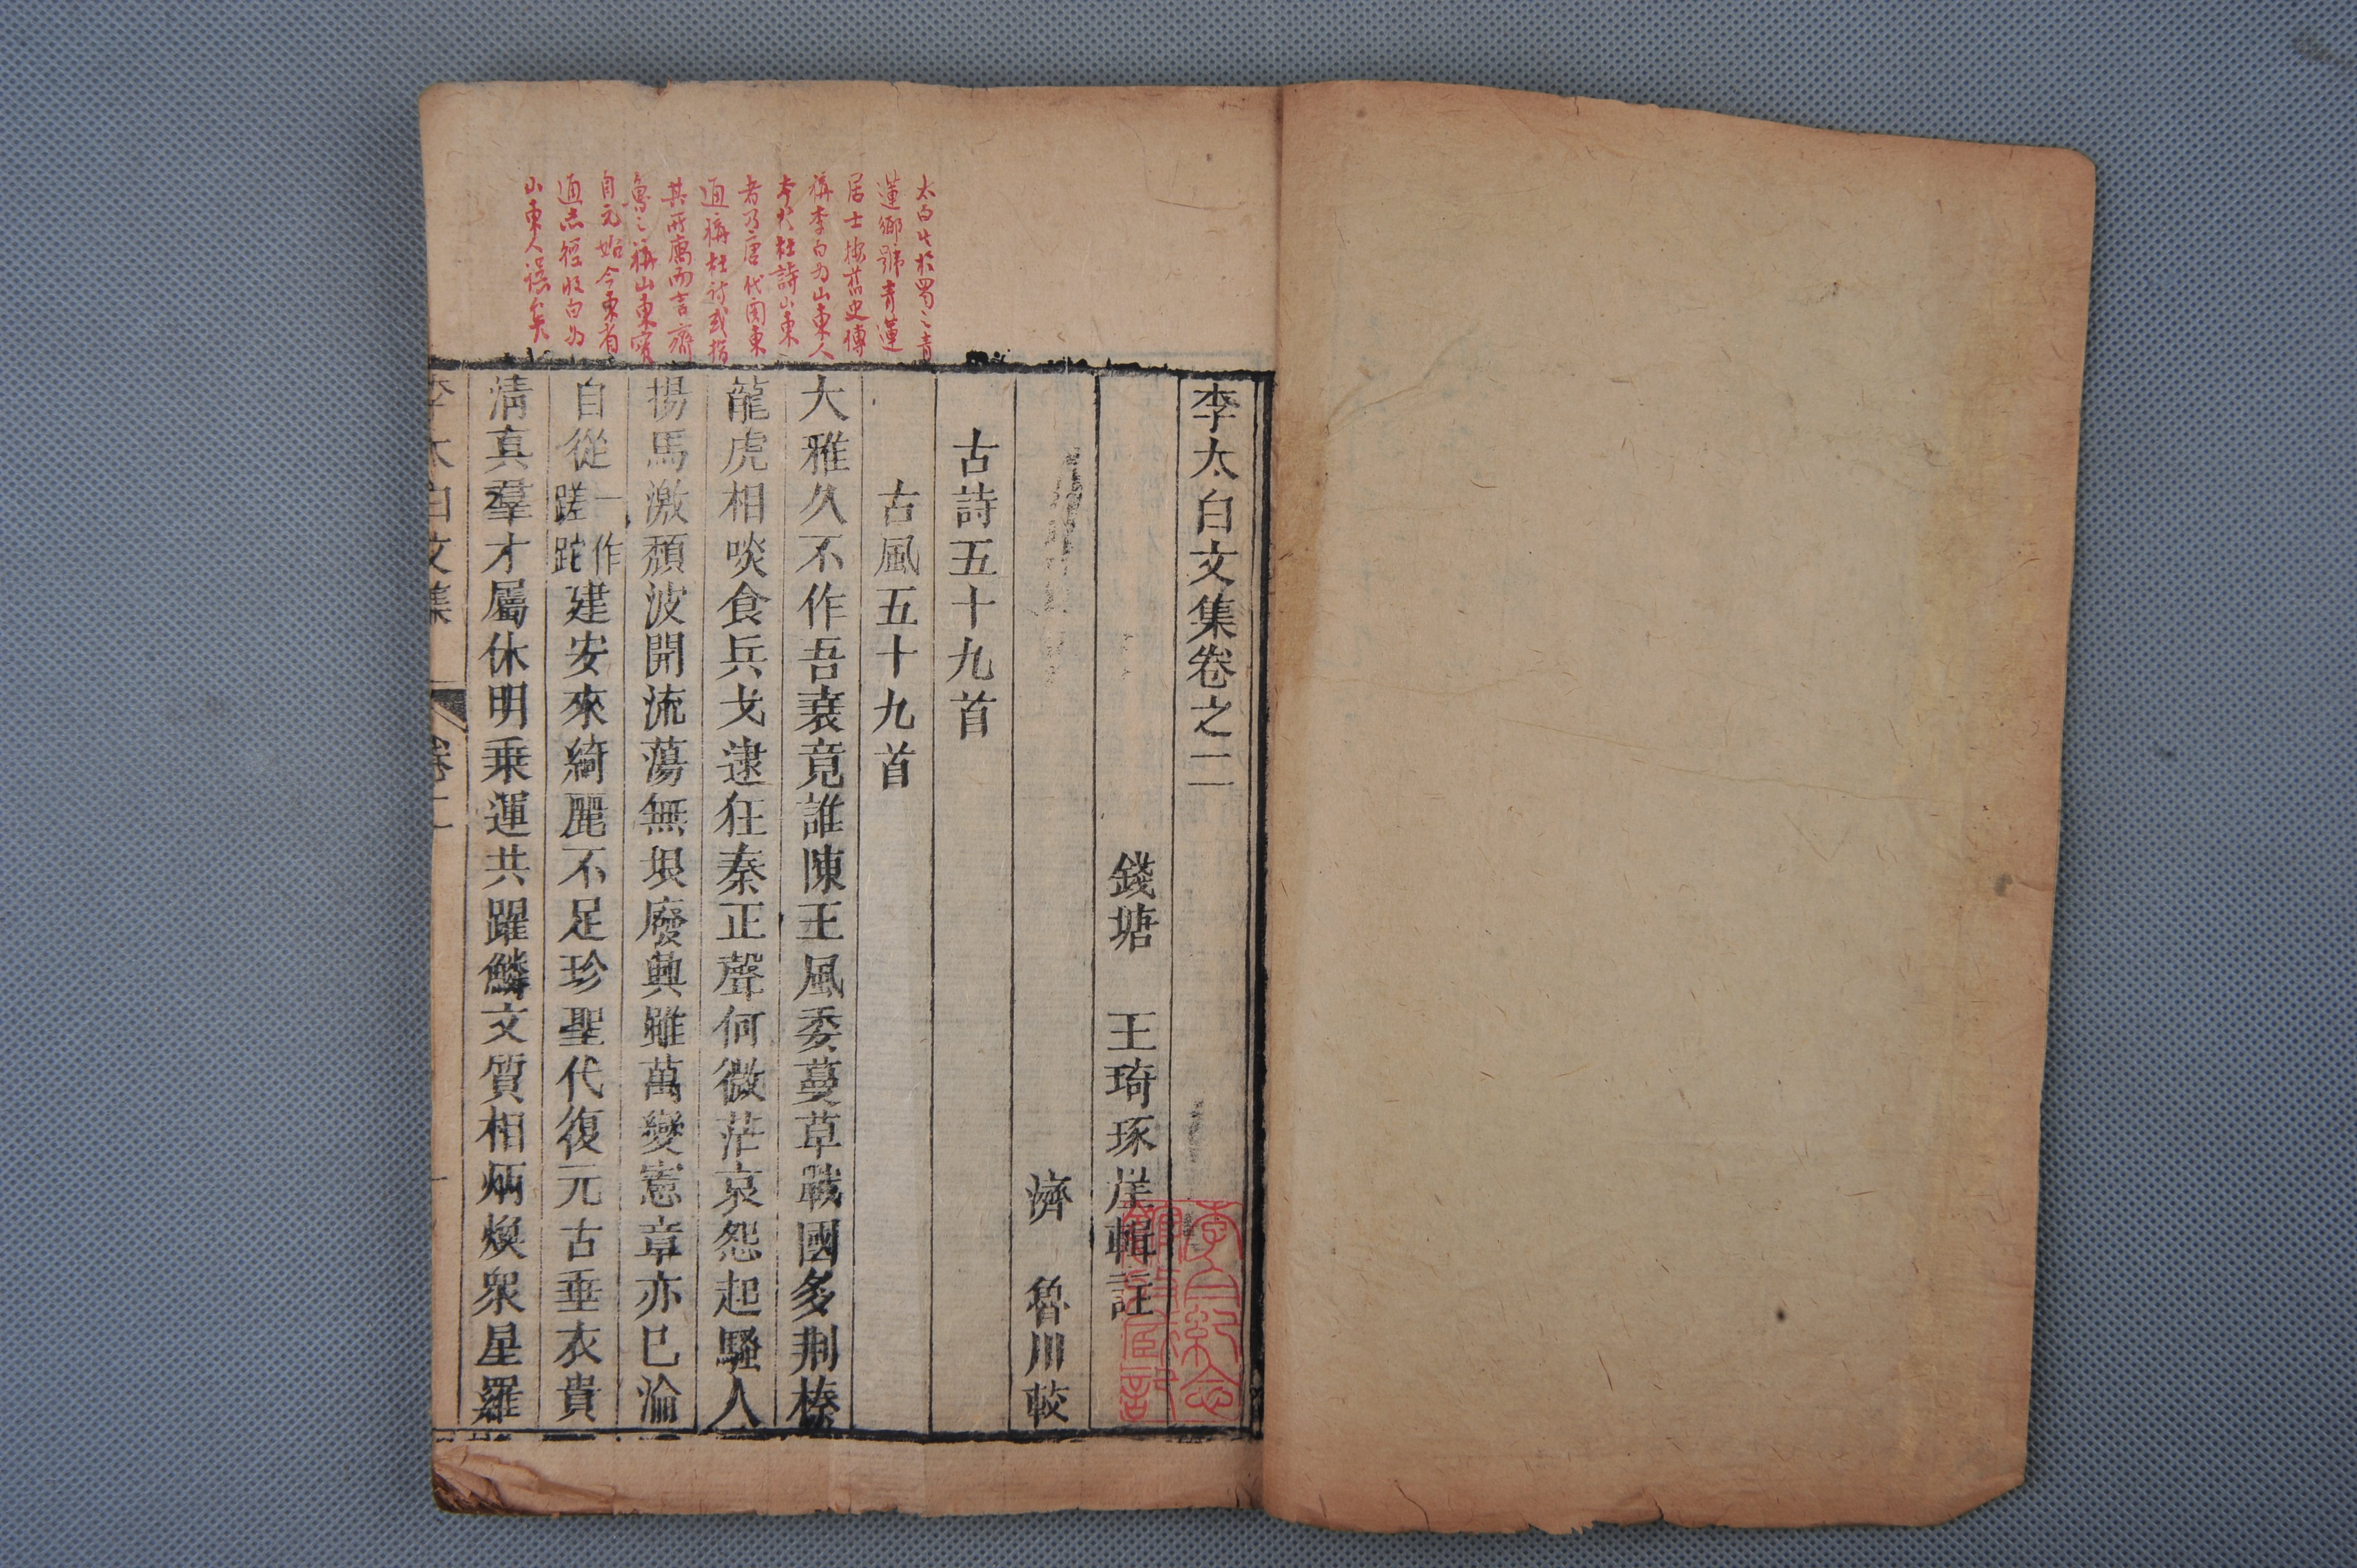 太白生於蜀之青
蓮鄉號青蓮
居士按舊史傳
稱李白為山東人
本於杜詩山東
者乃唐代關東
通稱杜詩或指
其所寓而言齊
魯之稱山東實
自元始今東省
通志經收白為
山東人誤矣
李太白文集卷之二
錢塘 王琦琢崖輯註
濟 魯川較
古詩五十九首
古風五十九首
大雅久不作吾衰竟誰陳王風委蔓草戰國多荆榛
龍虎相啖食兵戈逮狂秦正聲何微茫哀怨起騷人
揚馬激頹波開流蕩無垠廢興雖萬變憲章亦已淪
自從一作蹉跎建安來綺麗不足珍聖代復元古垂衣貴
清真羣才屬休明乘運共躍鱗文質相炳煥衆星羅
李太白文集 卷二 一
李白紀念館